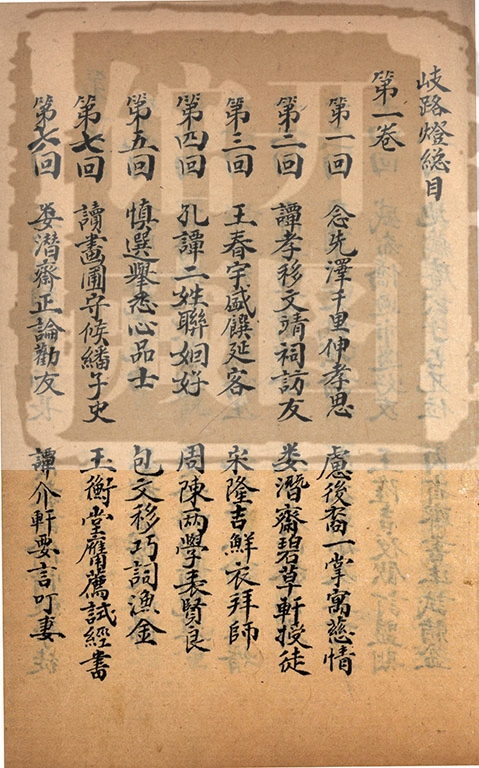 岐路燈総目
第一卷
第一回 念先澤千里伸孝思 慮後裔一掌寓慈情
第二回 譚孝移文靖祠訪友 娄潜齋碧草軒授徒
第三回 王春宇盛饌延客 宋隆吉鮮衣拜師
第四回 孔譚二姓聯姻好 周陳两學表賢良
第五回 慎選舉悉心品士 包文移巧詞漁金
第七回 讀畫圃守候繙子史 王衡堂膺薦試經書
第六回 娄潛齋正論勸友 譚介軒要言叮妻